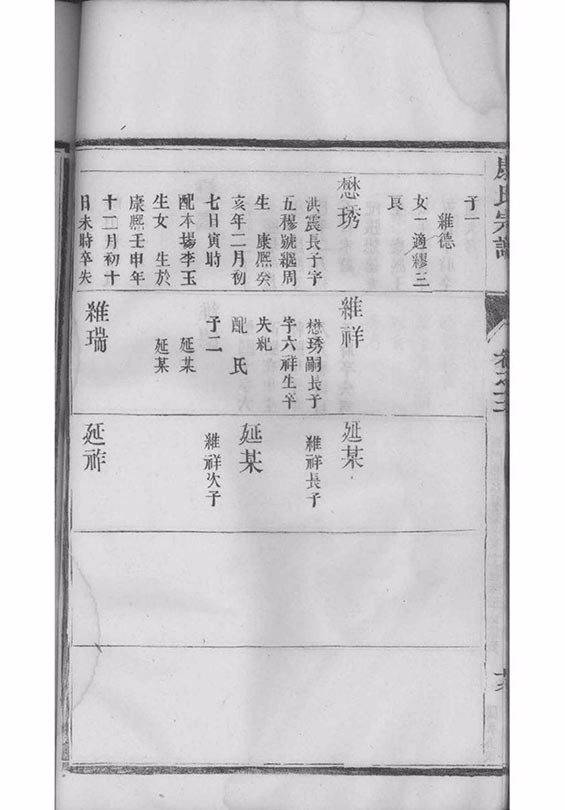 康氏宗譜
卷之十二
子一
維德
女一適繆三
良
懋琇
洪震長子字
五穆號繼周
生 康熙癸
亥年二月初
七日寅時
配本塲李玉
生女 生於
康熙壬申年
十二月初十
日未時卒失
維祥
懋琇嗣長子
字六祥生卒
失紀
配 氏
子二
延某
延某
維瑞
延某
維祥長子
延某
維祥次子
延祚